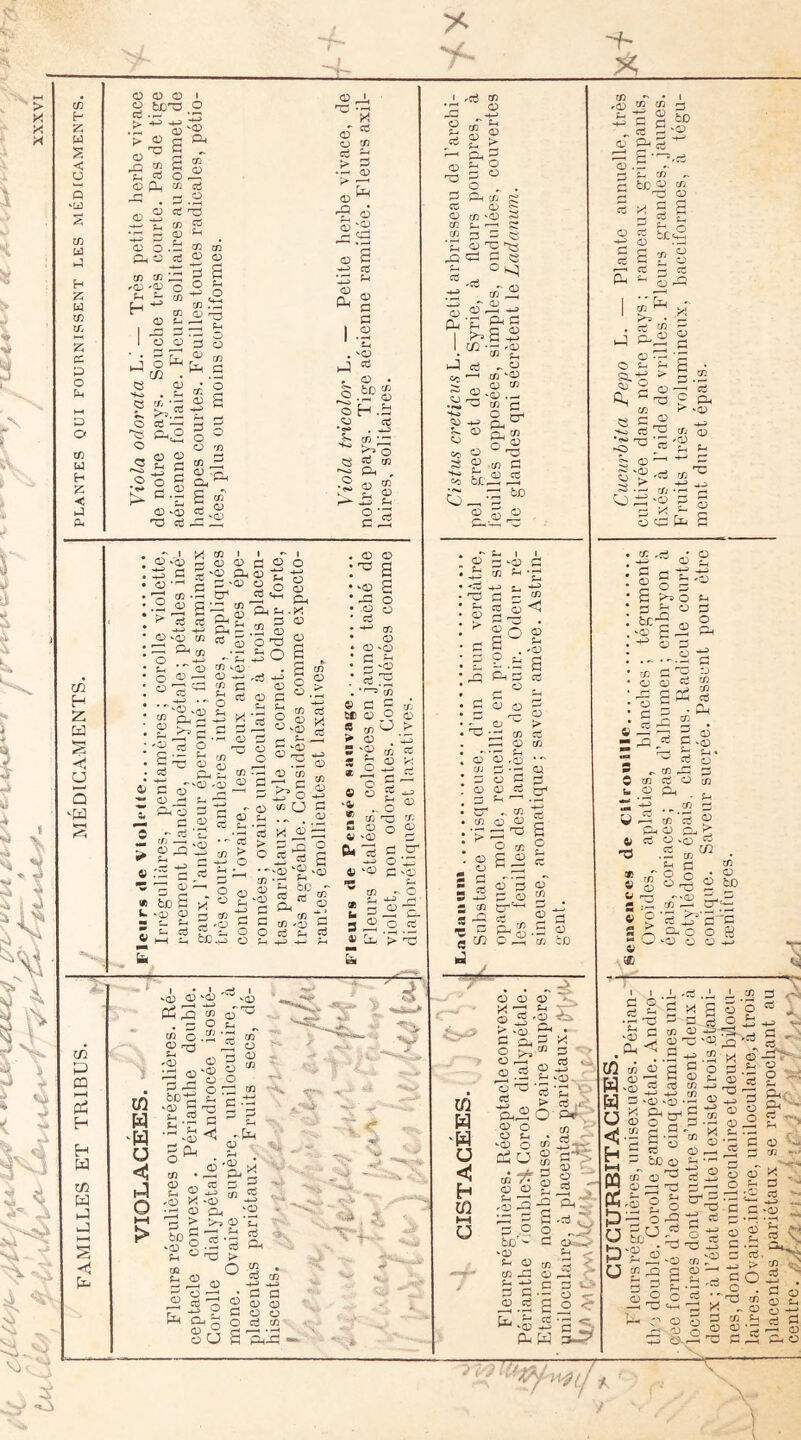 XXXVI
FAMILLES ET TRIBUS.
MÉDICAMENTS.
PLANTES QUI FOURNISSENT LES MÉDICAMENTS.
VIOLACÉES.
Fleurs régulières ou irrégulières. Ré-
ceptacle convexe. Périanthe double.
Corolle dialypétale. Androcée isosté-
mone. Ovaire supère, uniloculaire, à
placentas pariétaux. Fruits secs, dé-
hiscents.
Fleurs de Violette
Irrégulières, pentamères; corolle violette,
rarement blanche, dialypétale; pétales iné-
gaux, l'antérieur éperonné; filets staminaux
très courts; anthères introrses, appliquées
contre l'ovaire, les deux antérieures épe-
ronnées; ovaire uniloculaire à trois placen-
tas pariétaux; style en cornet. Odeur forte,
très agréable. Considérées comme expecto-
rantes, émollientes et laxatives.
Viola odorata L. — Très petite herbe vivace
de notre pays. Souche très courte. Pas de tige
aérienne foliaire. Fleurs solitaires au sommet de
hampes courtes. Feuilles toutes radicales, pétio-
lées, plus ou moins cordiformes.
Fleurs de Pensée sauvage
Fleurs étalées, colorées en jaune taché de
violet, non odorantes. Considérées comme
diaphorétiques et laxatives.
Viola tricolor L. — Petite herbe vivace, de
notre pays. Tige aérienne ramifiée. Fleurs axil-
laires, solitaires.
CISTACÉES.
Fleurs régulières. Réceptacle convexe.
Périanthe double. Corolle dialypétale.
Etamines nombreuses. Ovaire supère,
uniloculaire, à placentas pariétaux.
Ladanum
Substance visqueuse, d'un brun verdâtre,
opaque, molle, recueillie en promenant sur
les feuilles des lanières de cuir. Odeur ré-
sineuse, aromatique; saveur amère. Astrin-
gent.
Cistus creticus L.—Petit arbrisseau de l'archi-
pel grec et de la Syrie, à fleurs pourpres, à
feuilles opposées, simples, ondulées, couvertes
de glandes qui sécrètent le Ladanum.
CUCURBITACÉES.
Fleurs régulières, unisexuées. Périan-
the double. Corolle gamopétale. Andro-
cée formé d'abord de cinq étamines uni-
loculaires dont quatre s'unissent deux à
deux; à l'état adulte il existe trois étami-
nes, dont une uniloculaire et deux bilocu-
laires. Ovaire infère, uniloculaire, à trois
placentas pariétaux se rapprochant au
centre.
Semences de Citrouille
Ovoïdes, aplaties, blanches; téguments
épais, coriaces; pas d'albumen; embryon à
cotylédons épais, charnus. Radicule courte,
conique. Saveur sucrée. Passent pour être
tænifuges.
Cucurbita Pepo L. — Plante annuelle, très
cultivée dans notre pays; rameaux grimpants,
fixés à l'aide de vrilles. Fleurs grandes, jaunes.
Fruits très volumineux, bacciformes, à tégu-
ment dur et épais.